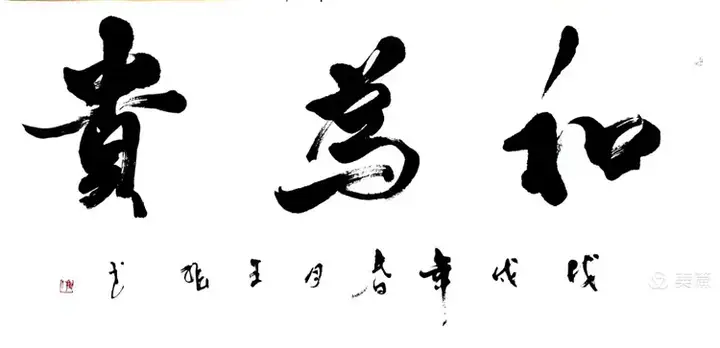 和為貴
戊戌年春月王书
美篇